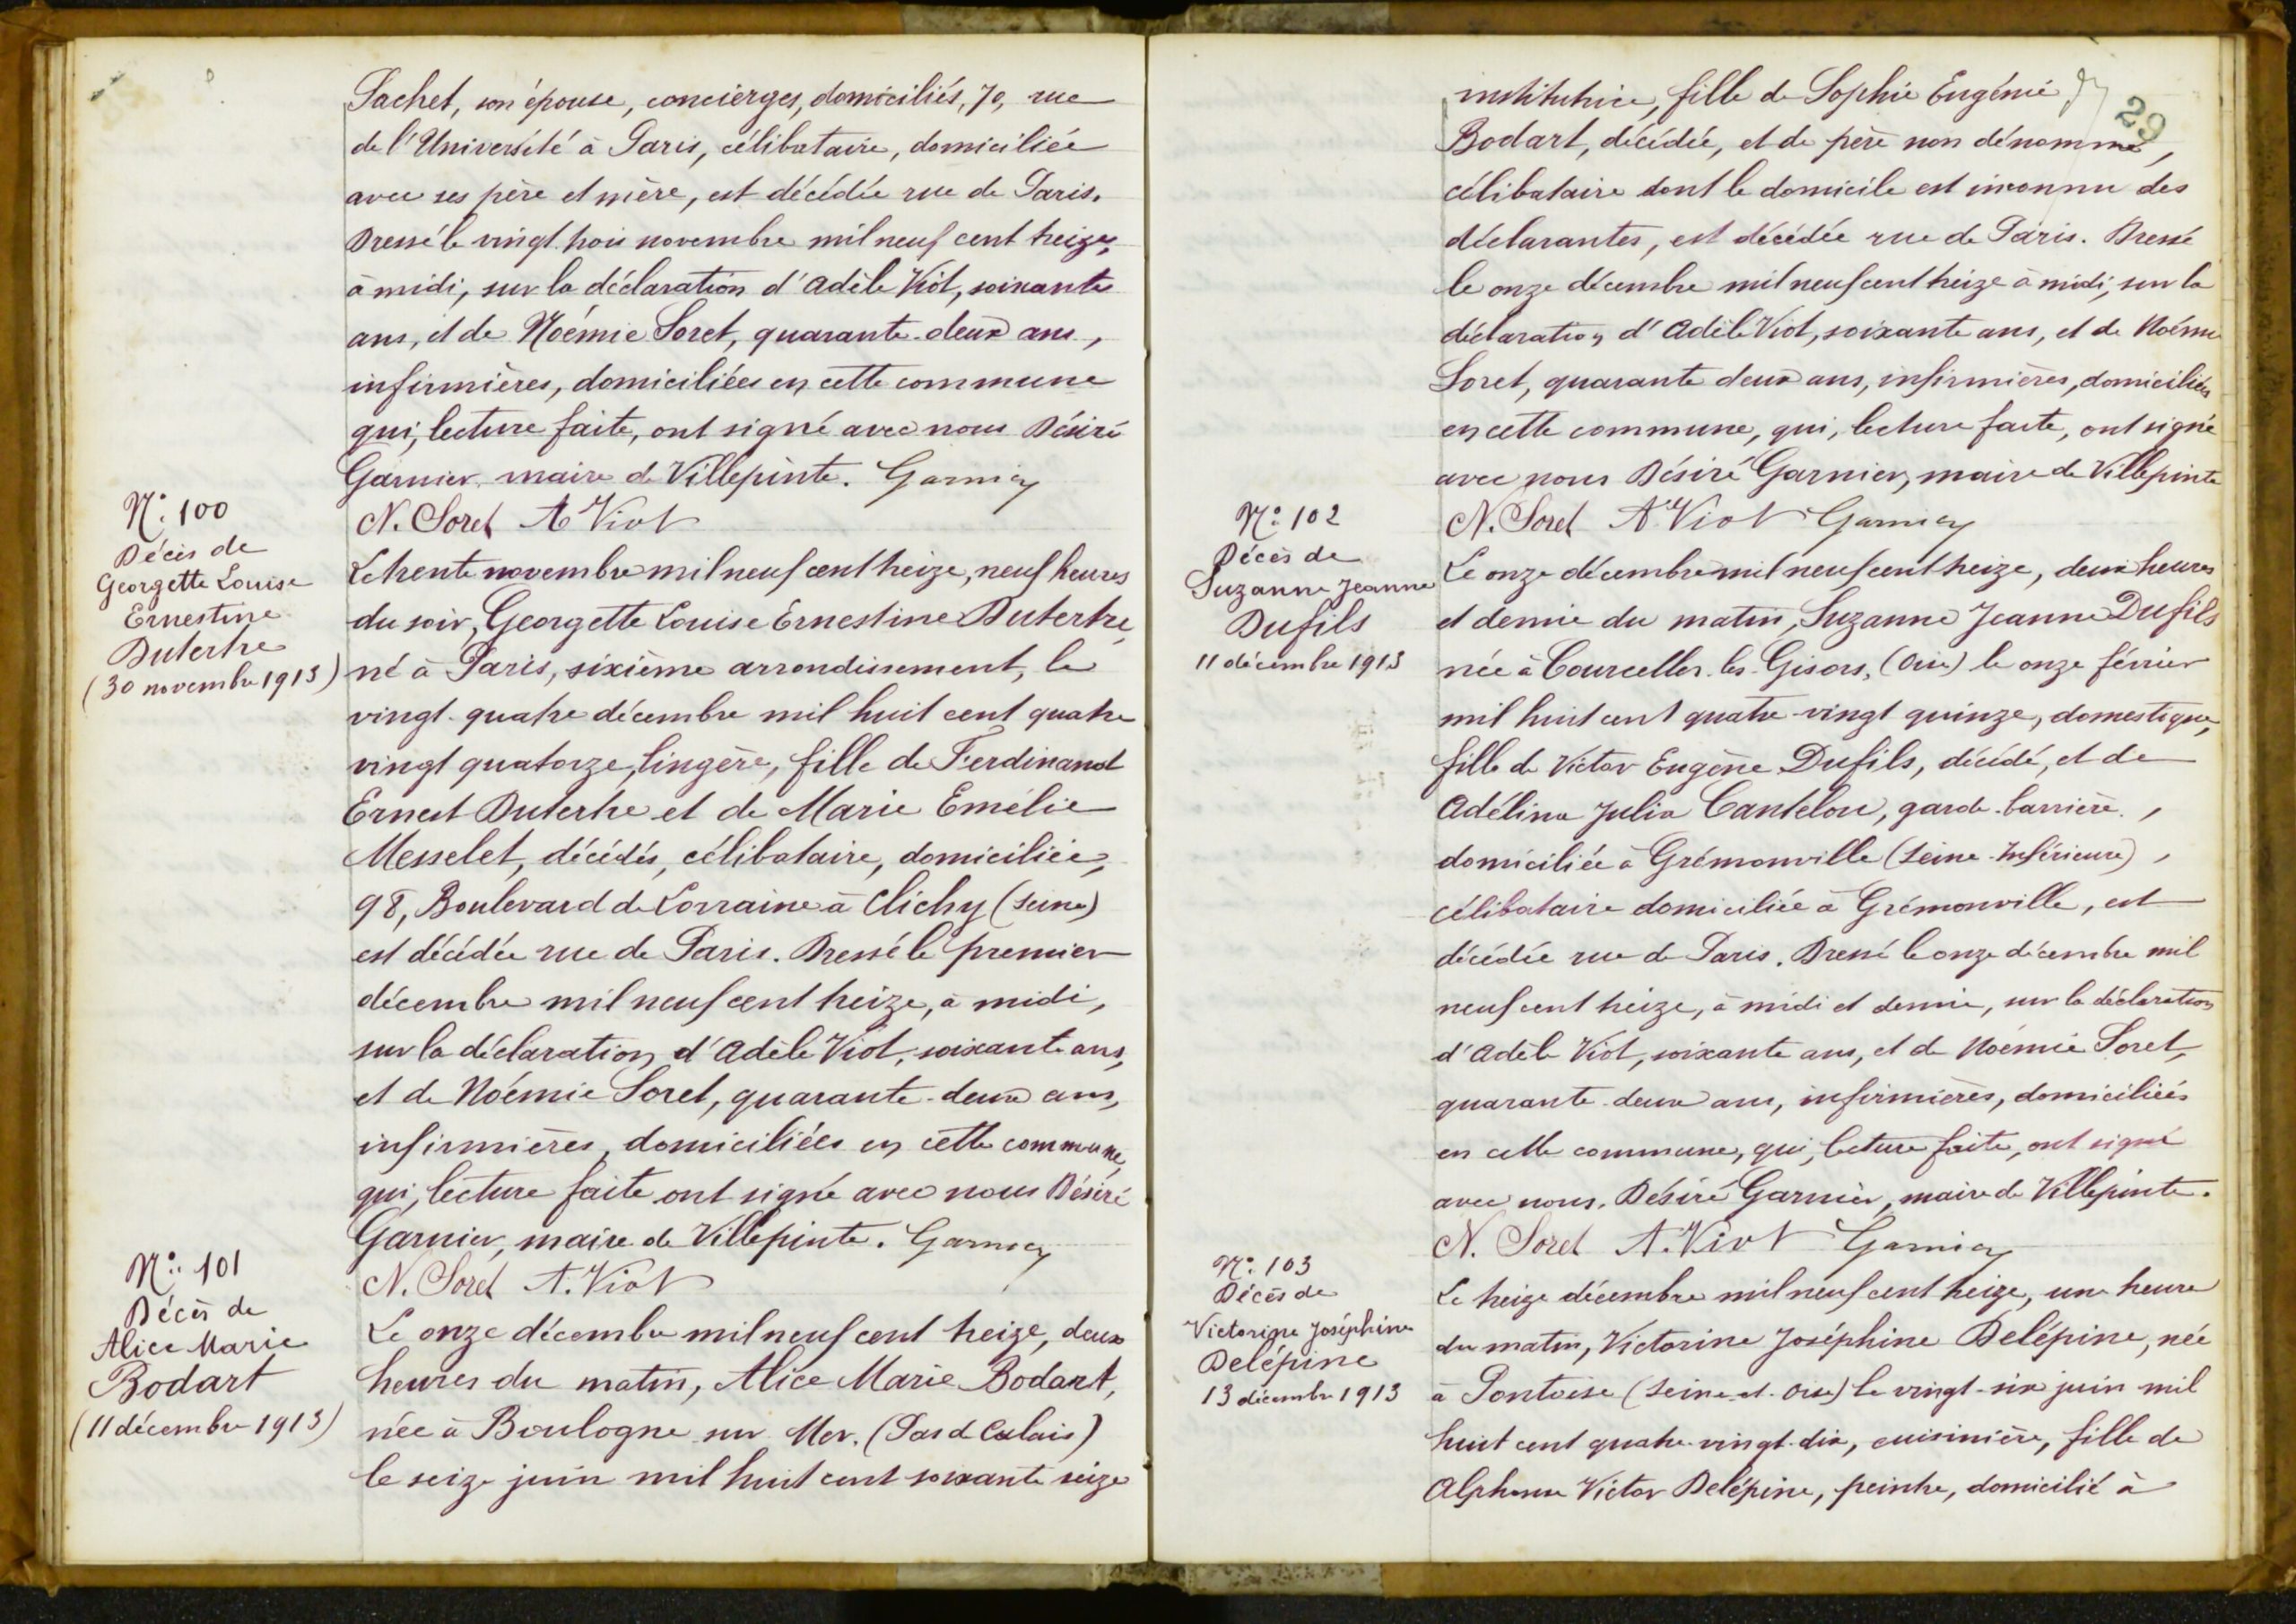 Pachet, son épouse, concierges, domiciliés, 70, rue
de l'Université à Paris, célibataire, domiciliée
avec ses père et mère, est décédée rue de Paris.
Dressé le vingt trois novembre mil neuf cent treize,
à midi, sur la déclaration d'Adèle Viot, soixante
ans, et de Noémie Soret, quarante-deux ans,
infirmières, domiciliées en cette commune
qui, lecture faite, ont signé avec nous Désiré
Garnier, maire de Villepinte. Garnier
N. Soret A Viot
N° 100
Décès de
Georgette Louise
Ernestine
Dutertre
(30 novembre 1913)
Le trente novembre mil neuf cent treize, neuf heures
du soir, Georgette Louise Ernestine Dutertre,
né à Paris, sixième arrondissement, le
vingt-quatre décembre mil huit cent quatre
vingt quatorze, lingère, fille de Ferdinand
Ernest Dutertre et de Marie Emélie
Messelet, décédés, célibataire, domiciliée,
98, Boulevard de Lorraine à Clichy (Seine)
est décédée rue de Paris. Dressé le premier
décembre mil neuf cent treize, à midi,
sur la déclaration d'Adèle Viot, soixante ans,
et de Noémie Soret, quarante-deux ans,
infirmières, domiciliées en cette commune,
qui, lecture faite ont signé avec nous Désiré
Garnier, maire de Villepinte. Garnier
N. Soret A. Viot
N° 101
Décès de
Alice Marie
Bodart
(11 décembre 1913)
Le onze décembre mil neuf cent treize, deux
heures du matin, Alice Marie Bodart,
née à Boulogne sur Mer. (Pas de Calais)
le seize juin mil huit cent soixante seize
29
institutrice, fille de Sophie Eugénie
Bodart, décédée, et de père non dénommé,
célibataire dont le domicile est inconnu des
déclarantes, est décédée rue de Paris. Dressé
le onze décembre mil neuf cent treize à midi, sur la
déclaration d'Adèle Viot, soixante ans, et de Noémie
Soret, quarante deux ans, infirmières, domiciliées
en cette commune, qui, lecture faite, ont signé
avec nous Désiré Garnier, maire de Villepinte
N. Soret A. Viot Garnier
N° 102
Décès de
Suzanne Jeanne
Dufils
11 décembre 1913
Le onze décembre mil neuf cent treize, deux heures
et demie du matin, Suzanne Jeanne Dufils
née à Courcelles-les-Gisors, (Oise) le onze février
mil huit cent quatre-vingt quinze, domestique,
fille de Victor Eugène Dufils, décédé, et de
Adélina Julia Cantelou, garde-barrière,
domiciliée à Grémonville (Seine-Inférieure),
célibataire domiciliée à Grémonville, est
décédée rue de Paris. Dressé le onze décembre mil
neuf cent treize, à midi et demie, sur la déclaration
d'Adèle Viot, soixante ans, et de Noémie Soret,
quarante-deux ans, infirmières, domiciliées
en cette commune, qui, lecture faite, ont signé
avec nous, Désiré Garnier, maire de Villepinte.
N. Soret A. Viot Garnier
N° 103
Décès de
Victorine Joséphine
Delépine
13 décembre 1913
Le treize décembre mil neuf cent treize, une heure
du matin, Victorine Joséphine Delépine, née
à Pontoise (Seine-et-Oise) le vingt-six juin mil
huit cent quatre-vingt-dix, cuisinière, fille de
Alphonse Victor Delépine, peintre, domicilié à